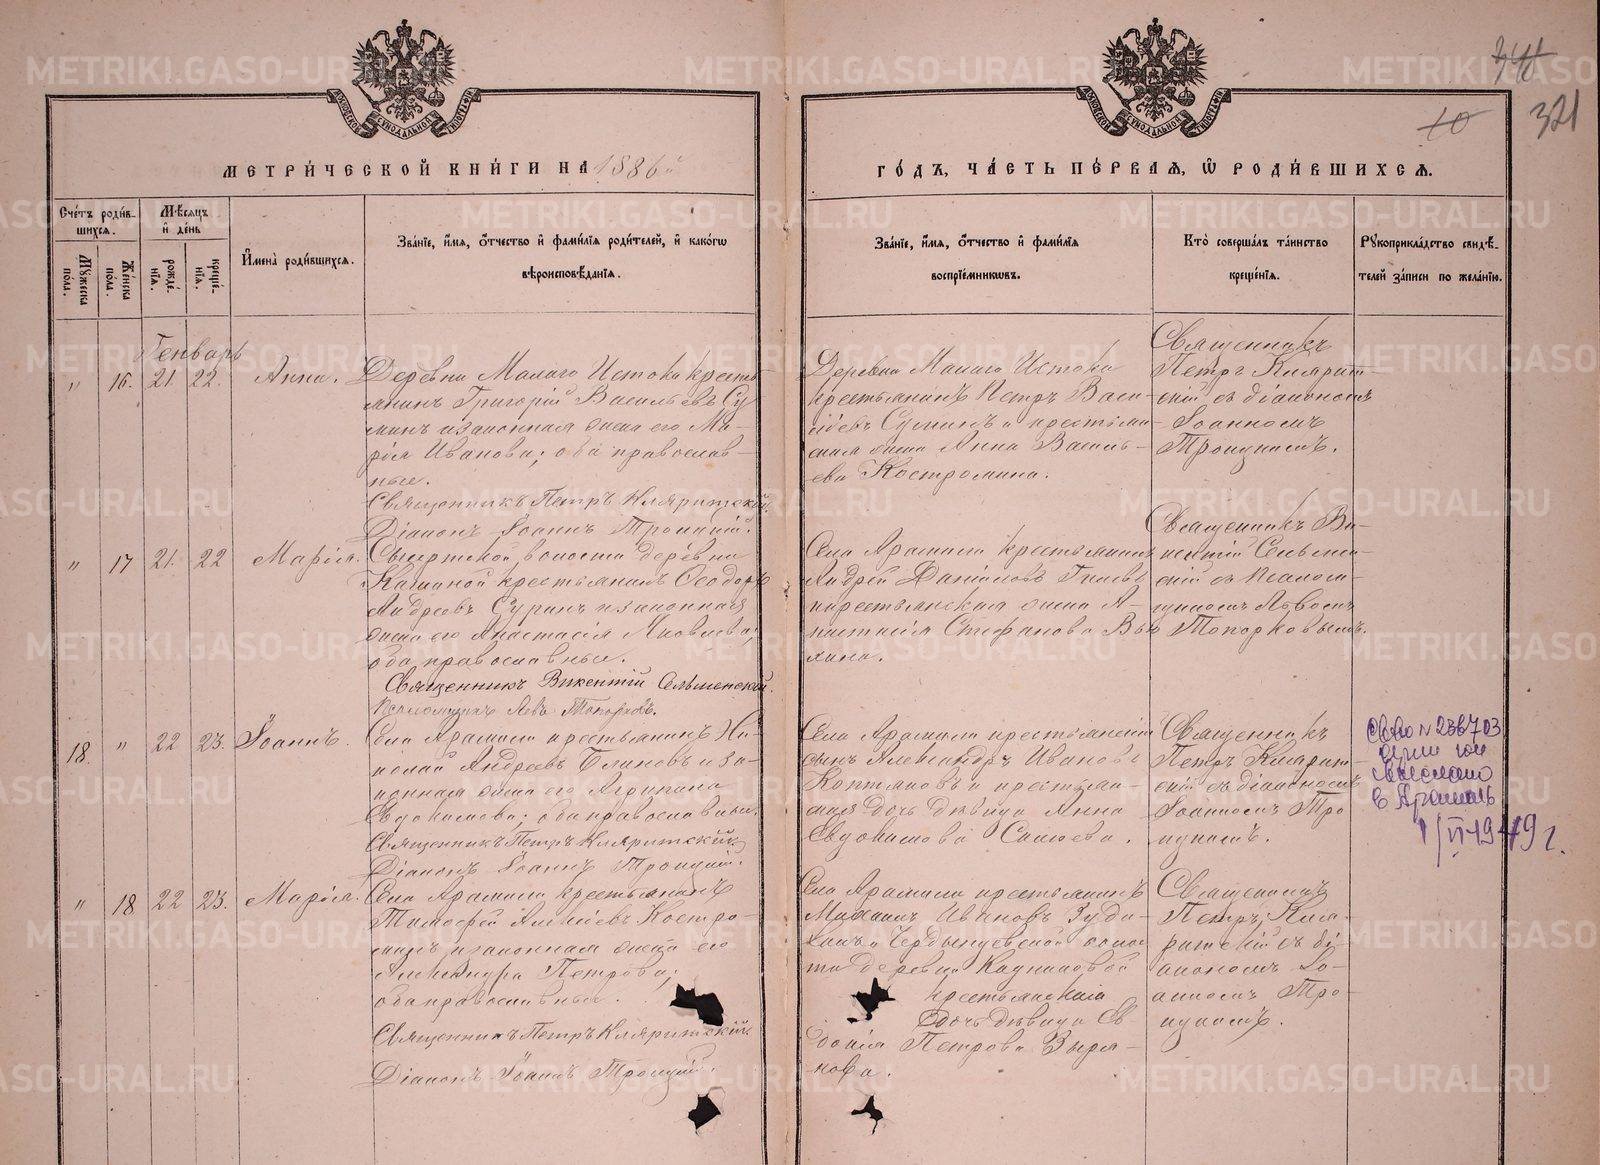 МЕТРИ́ЧЕСКОЙ КНИ́ГИ НА 1886й
ГО́ДЪ, ЧА́СТЬ ПЕ́РВАЯ, Ѿ РОДИ́ВШИХСЯ.
321
10
Сче́тъ роди́в-
шихся.
Мѣ́сяцъ
и де́нь
Му́жеска
по́ла.
Же́нска
по́ла.
рожде́-
нія.
креще́-
нія.
Имена̀ роди́вшихся.
Зва́ніе, и́мя, о́тчество и фами́лія роди́телей, и како́гѡ
вѣроисповѣ́данія.
Зва́ніе, и́мя, о́тчество и фами́лія
воспріе́мникѡвъ.
Кто̀ соверша́лъ та́инство
креще́нія.
Рукоприкла́дство свидѣ́-
телей за́писи по жела́нію.
Генварь
" 16. 21. 22. Анна.
Деревни Малаго Истока кресть-
янинъ Григорій Васильевъ Су
минъ и законная жена его Ма-
рія Иванова; оба православ-
ные.
Священникъ Петръ Кляритскій
Діаконъ Іоаннъ Троицкій.
Деревни Малаго Истока
крестьянинъ Петръ Васи
льевъ Суминъ и крестьян-
ская жена Анна Василь-
ева Костромина.
Священникъ
Петръ Клярит-
скій съ діакономъ
Іоанномъ
Троицкимъ.
" 17 21. 22 Марія.
Сысертской волости деревни
Кашиной крестьянинъ Ѳеодоръ
Андреевъ Суринъ и законная
жена его Анастасія Яковлева;
оба православные.
Священникъ Викентій Сельменскій.
Псаломщикъ Левъ Топорковъ.
Села Арамили крестьянинъ
Андрей Даніиловъ
и крестьянская жена А-
настасія Стефанова
Священникъ Ви-
кентій Сельмен-
скій съ Псалом-
щикомъ Львомъ
Топорковымъ.
18. " 22 23. Іоаннъ.
Села Арамили крестьянинъ Ни
колай Андреевъ Блиновъ и за-
конная жена его Агрипина
Евдокимова; оба православные.
Священникъ Петръ Кляритскій
Діаконъ Іоаннъ Троицкій.
Села Арамили крестьянскій
сынъ Александръ Ивановъ
Коптяковъ и крестьян-
ская дочь дѣвица Анна
Евдокимова
Священникъ
Петръ Клярит-
скій съ діакономъ
Іоанномъ Тро
ицкимъ.
№ 236703
в Арамиль
1/VI-1949 г.
" 18 22 23. Марія.
Села Арамили крестьянинъ
Тимофей Алексѣевъ Костро-
минъ и законная жена его
Александра Петрова;
оба православные.
Священникъ Петръ Кляритскій
Діаконъ Іоаннъ Троицкій.
Села Арамили крестьянинъ
Михаилъ Ивановъ
деревни
крестьянская
дочь дѣвица Ев
докія Петрова Зыря-
нова.
Священникъ
Петръ Кля-
ритскій съ ді-
акономъ Іо-
анномъ Тро-
ицкимъ.
METRIKI.GASO-URAL.RU